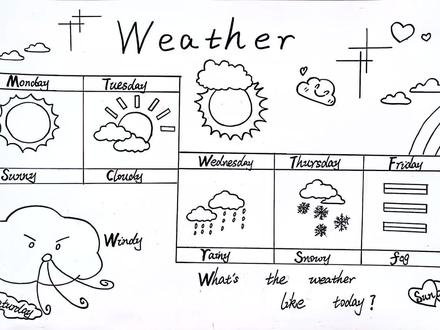 Weather
Monday Tuesday
Sunny Cloudy
Wednesday Thursday Friday
rainy Snowy fog
Windy
aturday
What's the weather
like today?